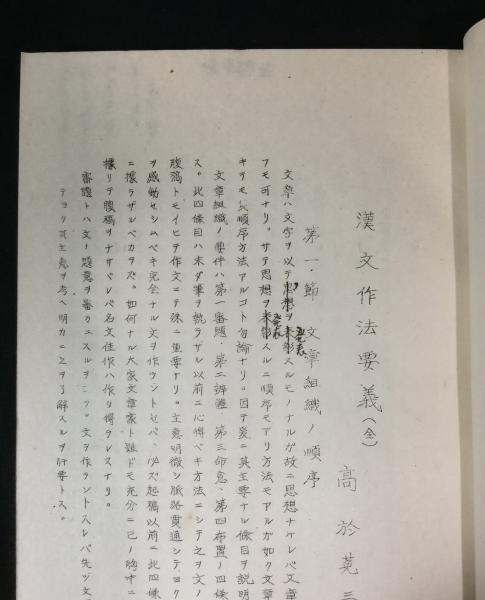 漢文作法要義(全)
高於莵三
第一節 文章組織ノ順序
文章ハ文字ヲ以テ思想ヲ表彰スルモノナルガ故ニ思想ナケレバ文章
フモ可ナリ。サテ思想ヲ表彰スルニ順序モアリ方法モアルガ如ク文章
キテモ順序方法アルコト勿論ナリ。因テ爰ニ其主要ナル條目ヲ説明
文章組織ノ要件ハ第一審題、第二辨體、第三命意、第四布置ノ四條
ス。此四條目ハ未ダ筆ヲ執ラザル以前ニ心得ベキ方法ニシテ之ヲ文ノ
腹稿トモイヒテ作文ニテ殊ニ重要ナリ。主意明徹シ脈路貫通シテヨク
ヲ感動セシムベキ完全ナル文ヲ作ラントセバ、必ズ起稿以前ニ此四條
ニ據ラザルベカラズ。如何ナル大家文章家ト雖ドモ充分ニ己ノ胸中ニ
據リテ腹稿ヲナサザレバ名文佳作ハ作リ得ラレズナリ。
審題トハ文ノ題意ヲ審カニスルヲイフ。文ヲ作ラント入レバ先ヅ文
テヨク其主意ヲ考ヘ明カニ之ヲ了解スルヲ肝要トス。